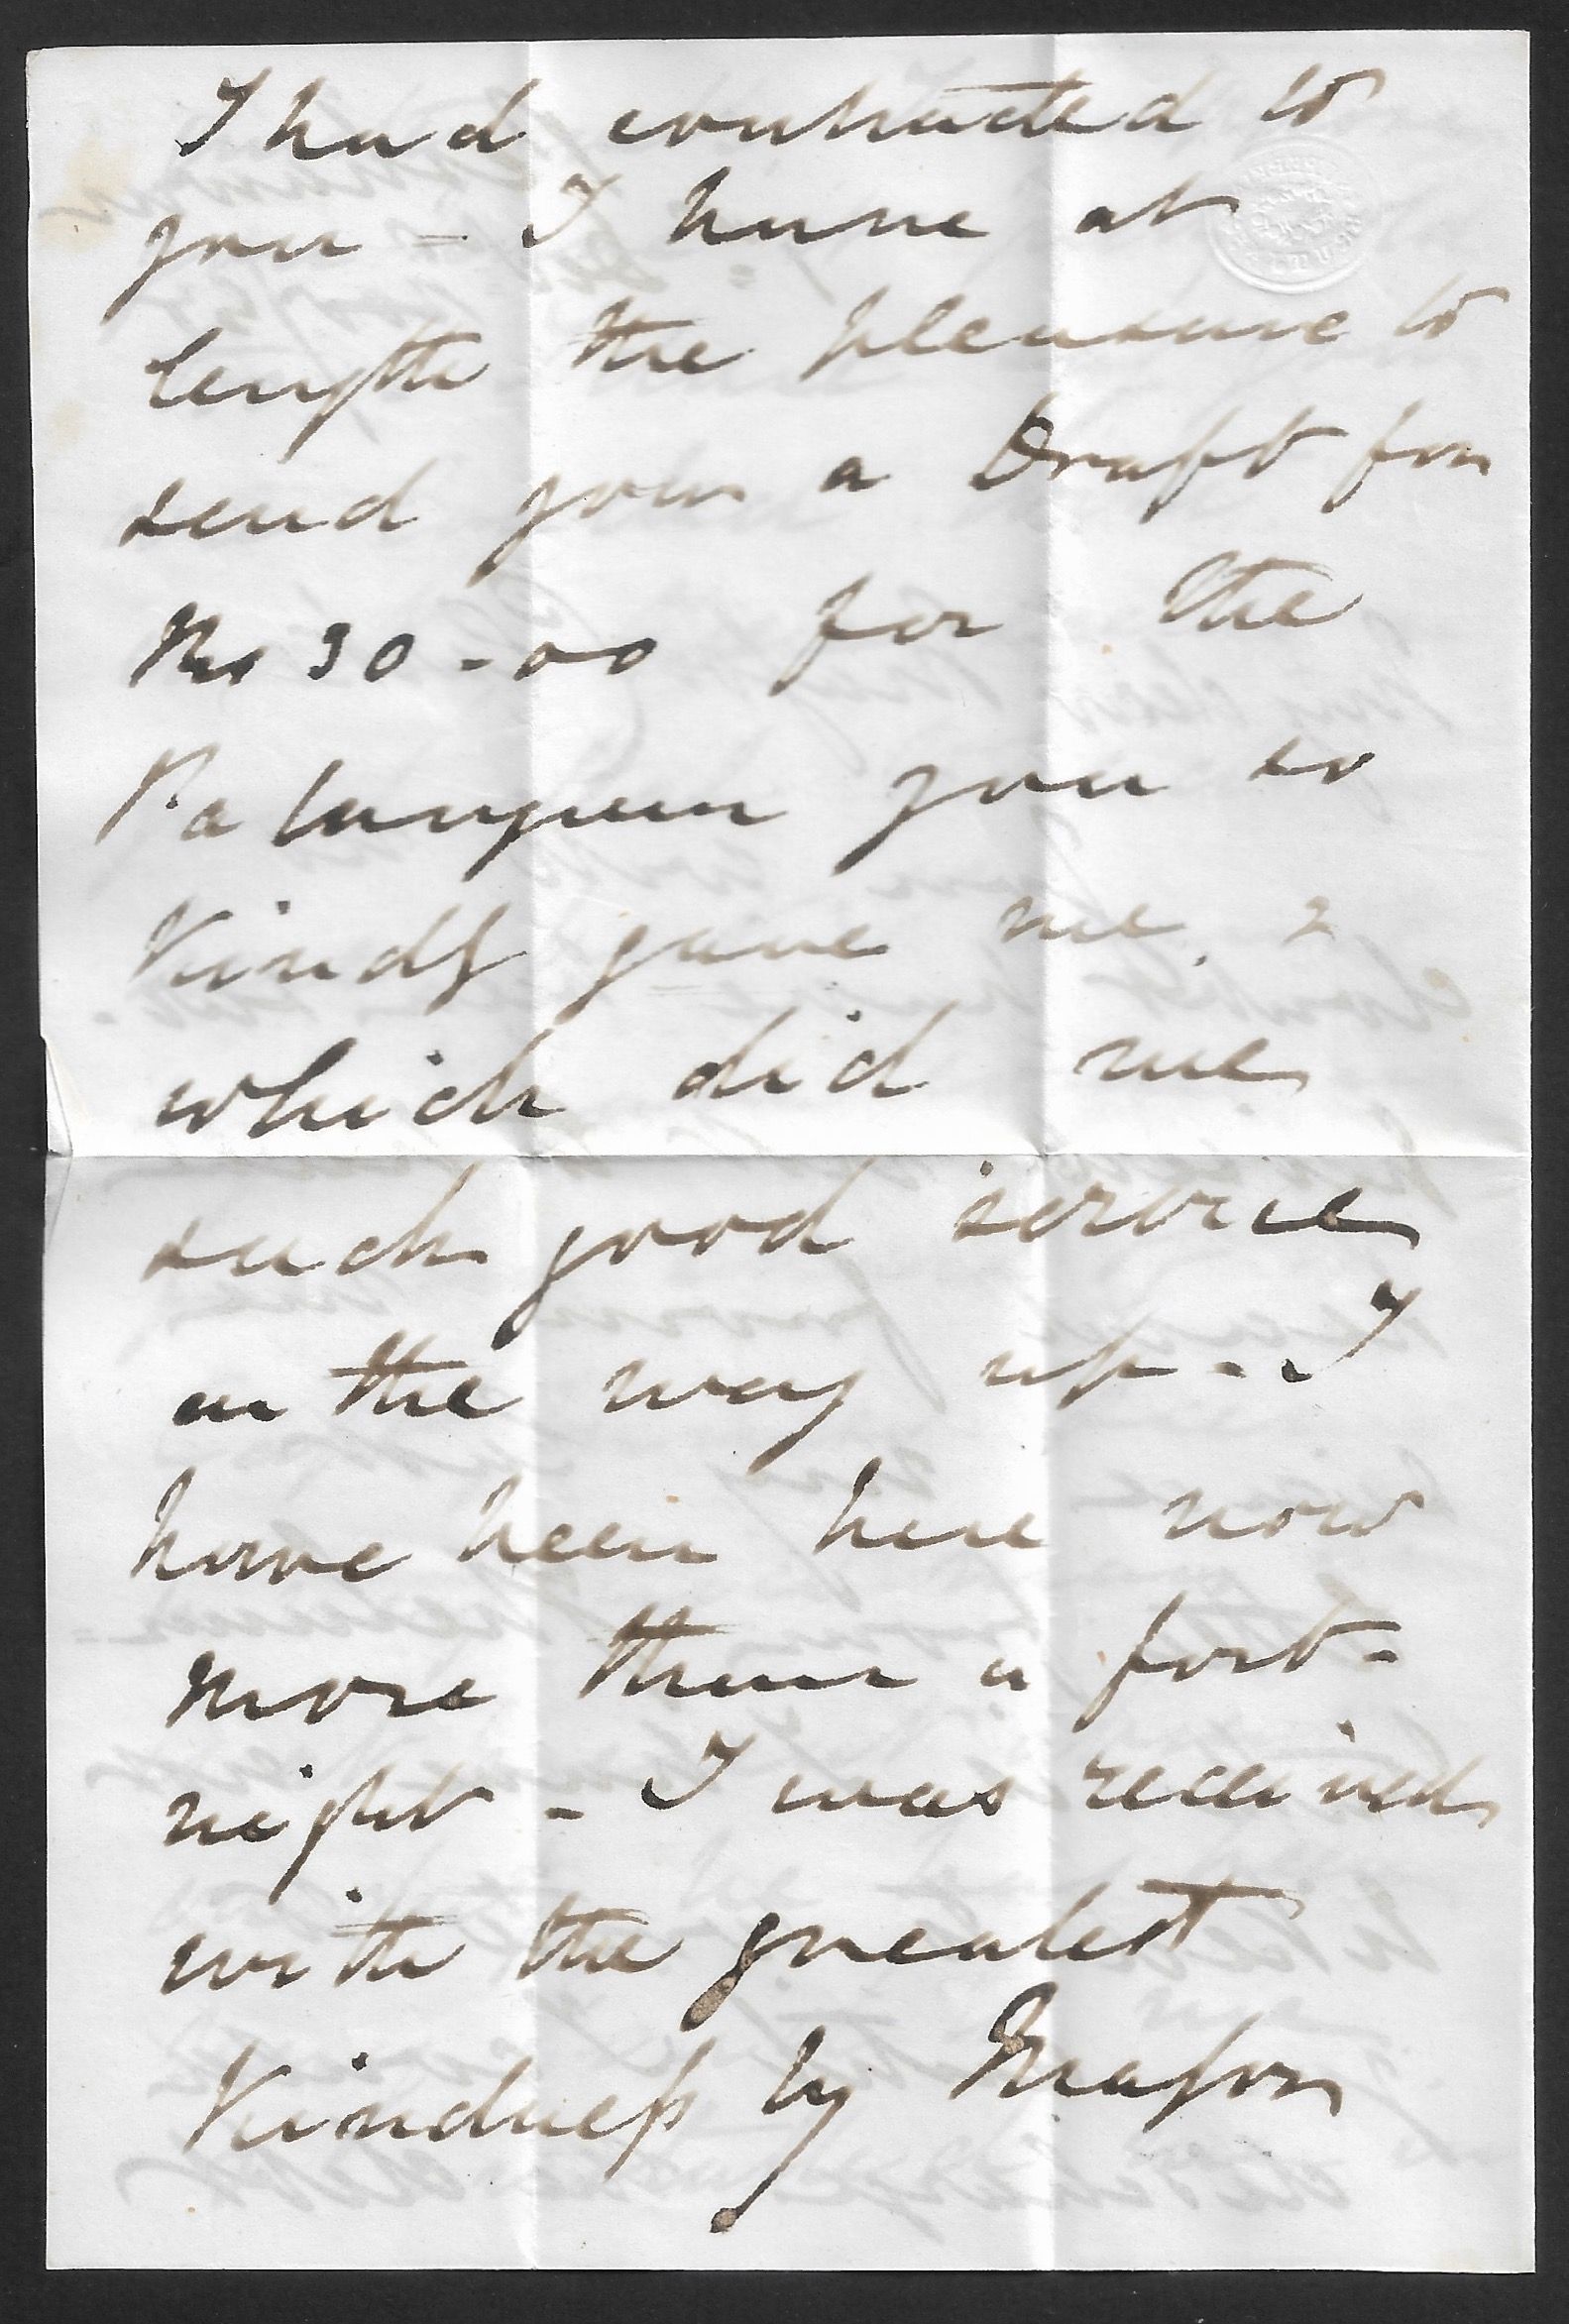 I had contracted to
you - I have at
length the pleasure to
send you a Draft for
Rs 30-00 for the
Palanquin you so
kindly gave me, &
which did me
such good service
on the way up - I
have been here now
more than a fort-
night - I was received
with the greatest
kindness by